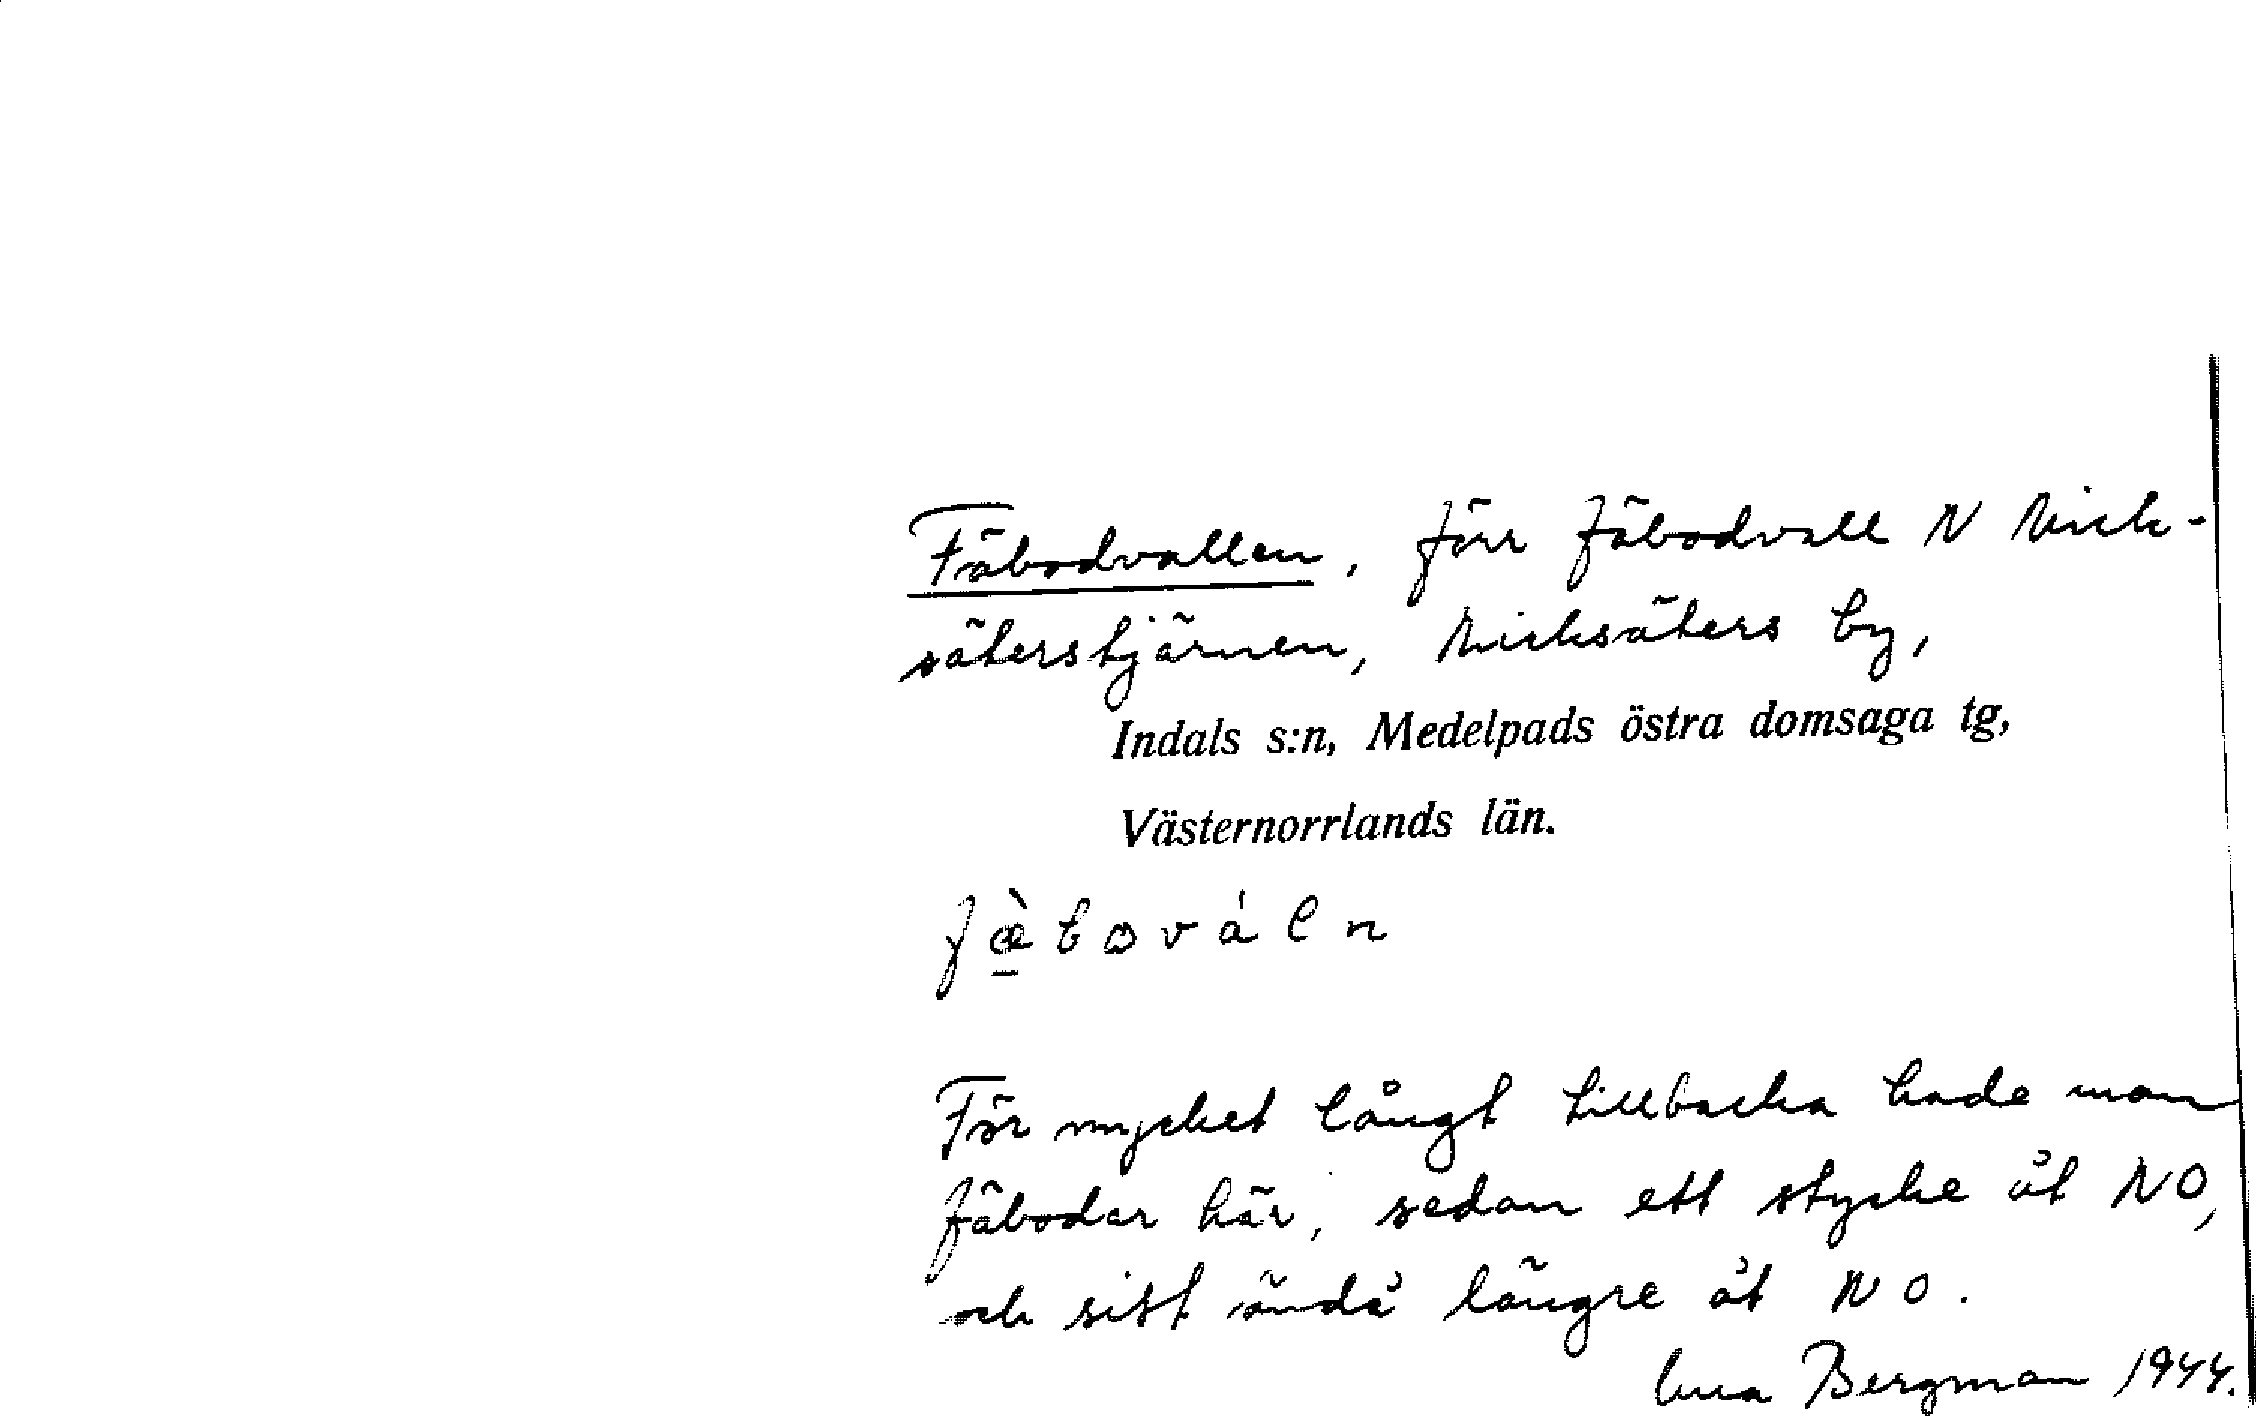 Fäbodvallen, förr fäbodvall N Nick-
säterstjärnen, Nicksäters by,
Indals s:n, Medelpads östra domsaga tg,
Västernorrlands län.
För mycket långt tillbacka hade man
fäbodar här, sedan ett stycke åt NO,
och sist ändå längre åt NO.
Bergman 1944.